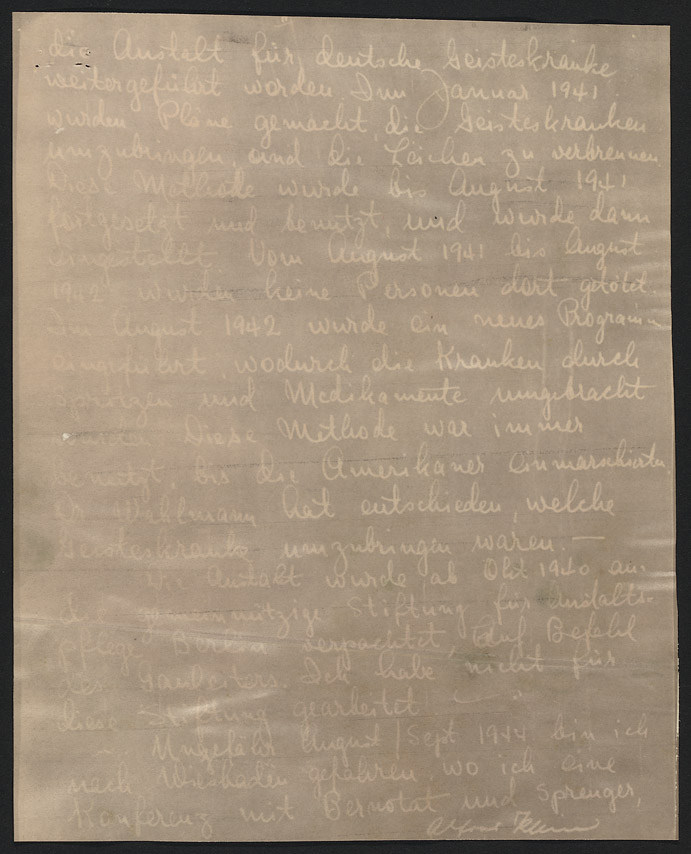 die Anstalt für deutsche Geisteskranke
weitergeführt worden. Im Januar 1941
wurden Pläne gemacht, die Geisteskranken
umzubringen, und die Leichen zu verbrennen.
Diese Methode wurde bis August 1941
fortgesetzt und benutzt, und wurde dann
eingestellt. Vom August 1941 bis August
1942 wurden keine Personen dort getötet.
Im August 1942 wurde ein neues Programm
eingeführt, wodurch die Kranken durch
Spritzen und Medikamente umgebracht
wurden. Diese Methode war immer
benutzt, bis die Amerikaner einmarschierten.
Dr. Wahlmann hat entschieden, welche
Geisteskranke umzubringen waren. —
Die Anstalt wurde ab Okt 1940 an
die gemeinnützige Stiftung für Anstalts-
pflege, Berlin verpachtet, auf Befehl
des Gauleiters. Ich habe nicht für
diese Stiftung gearbeitet
Ungefähr August/Sept. 1944 bin ich
nach Wiesbaden gefahren, wo ich eine
Konferenz mit Bernotat und Sprenger,
Alfons Klein